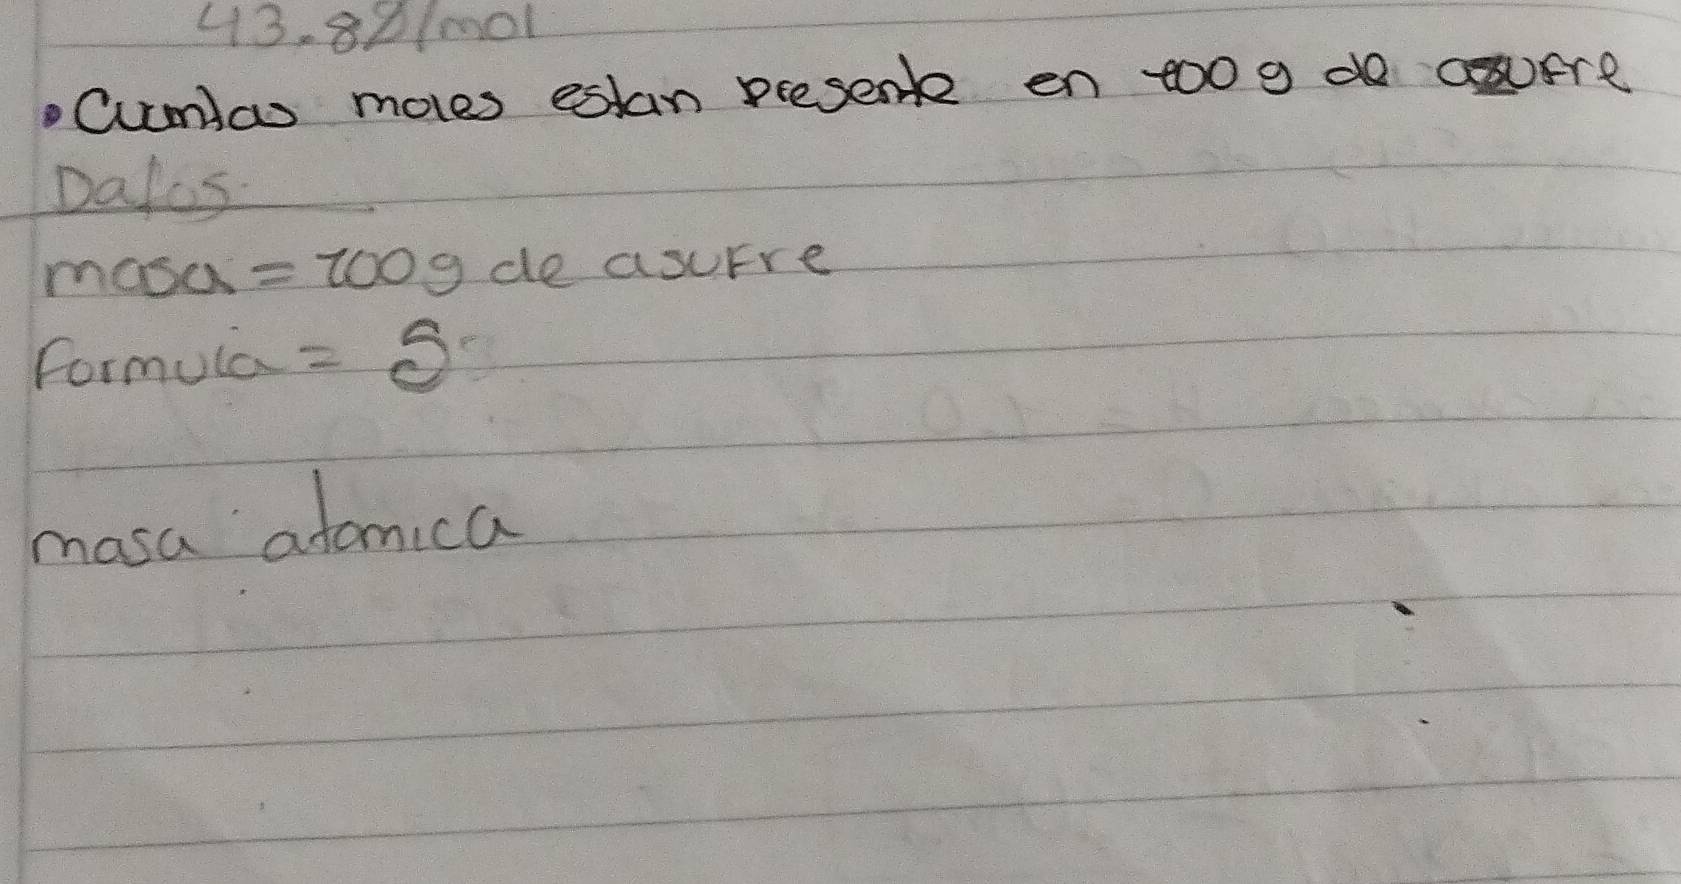 43.88/mol
•Cuantas moles estan presente en 100 g de azufre
Datos
masa = 100g de asufre
Formula = S
masa atomica